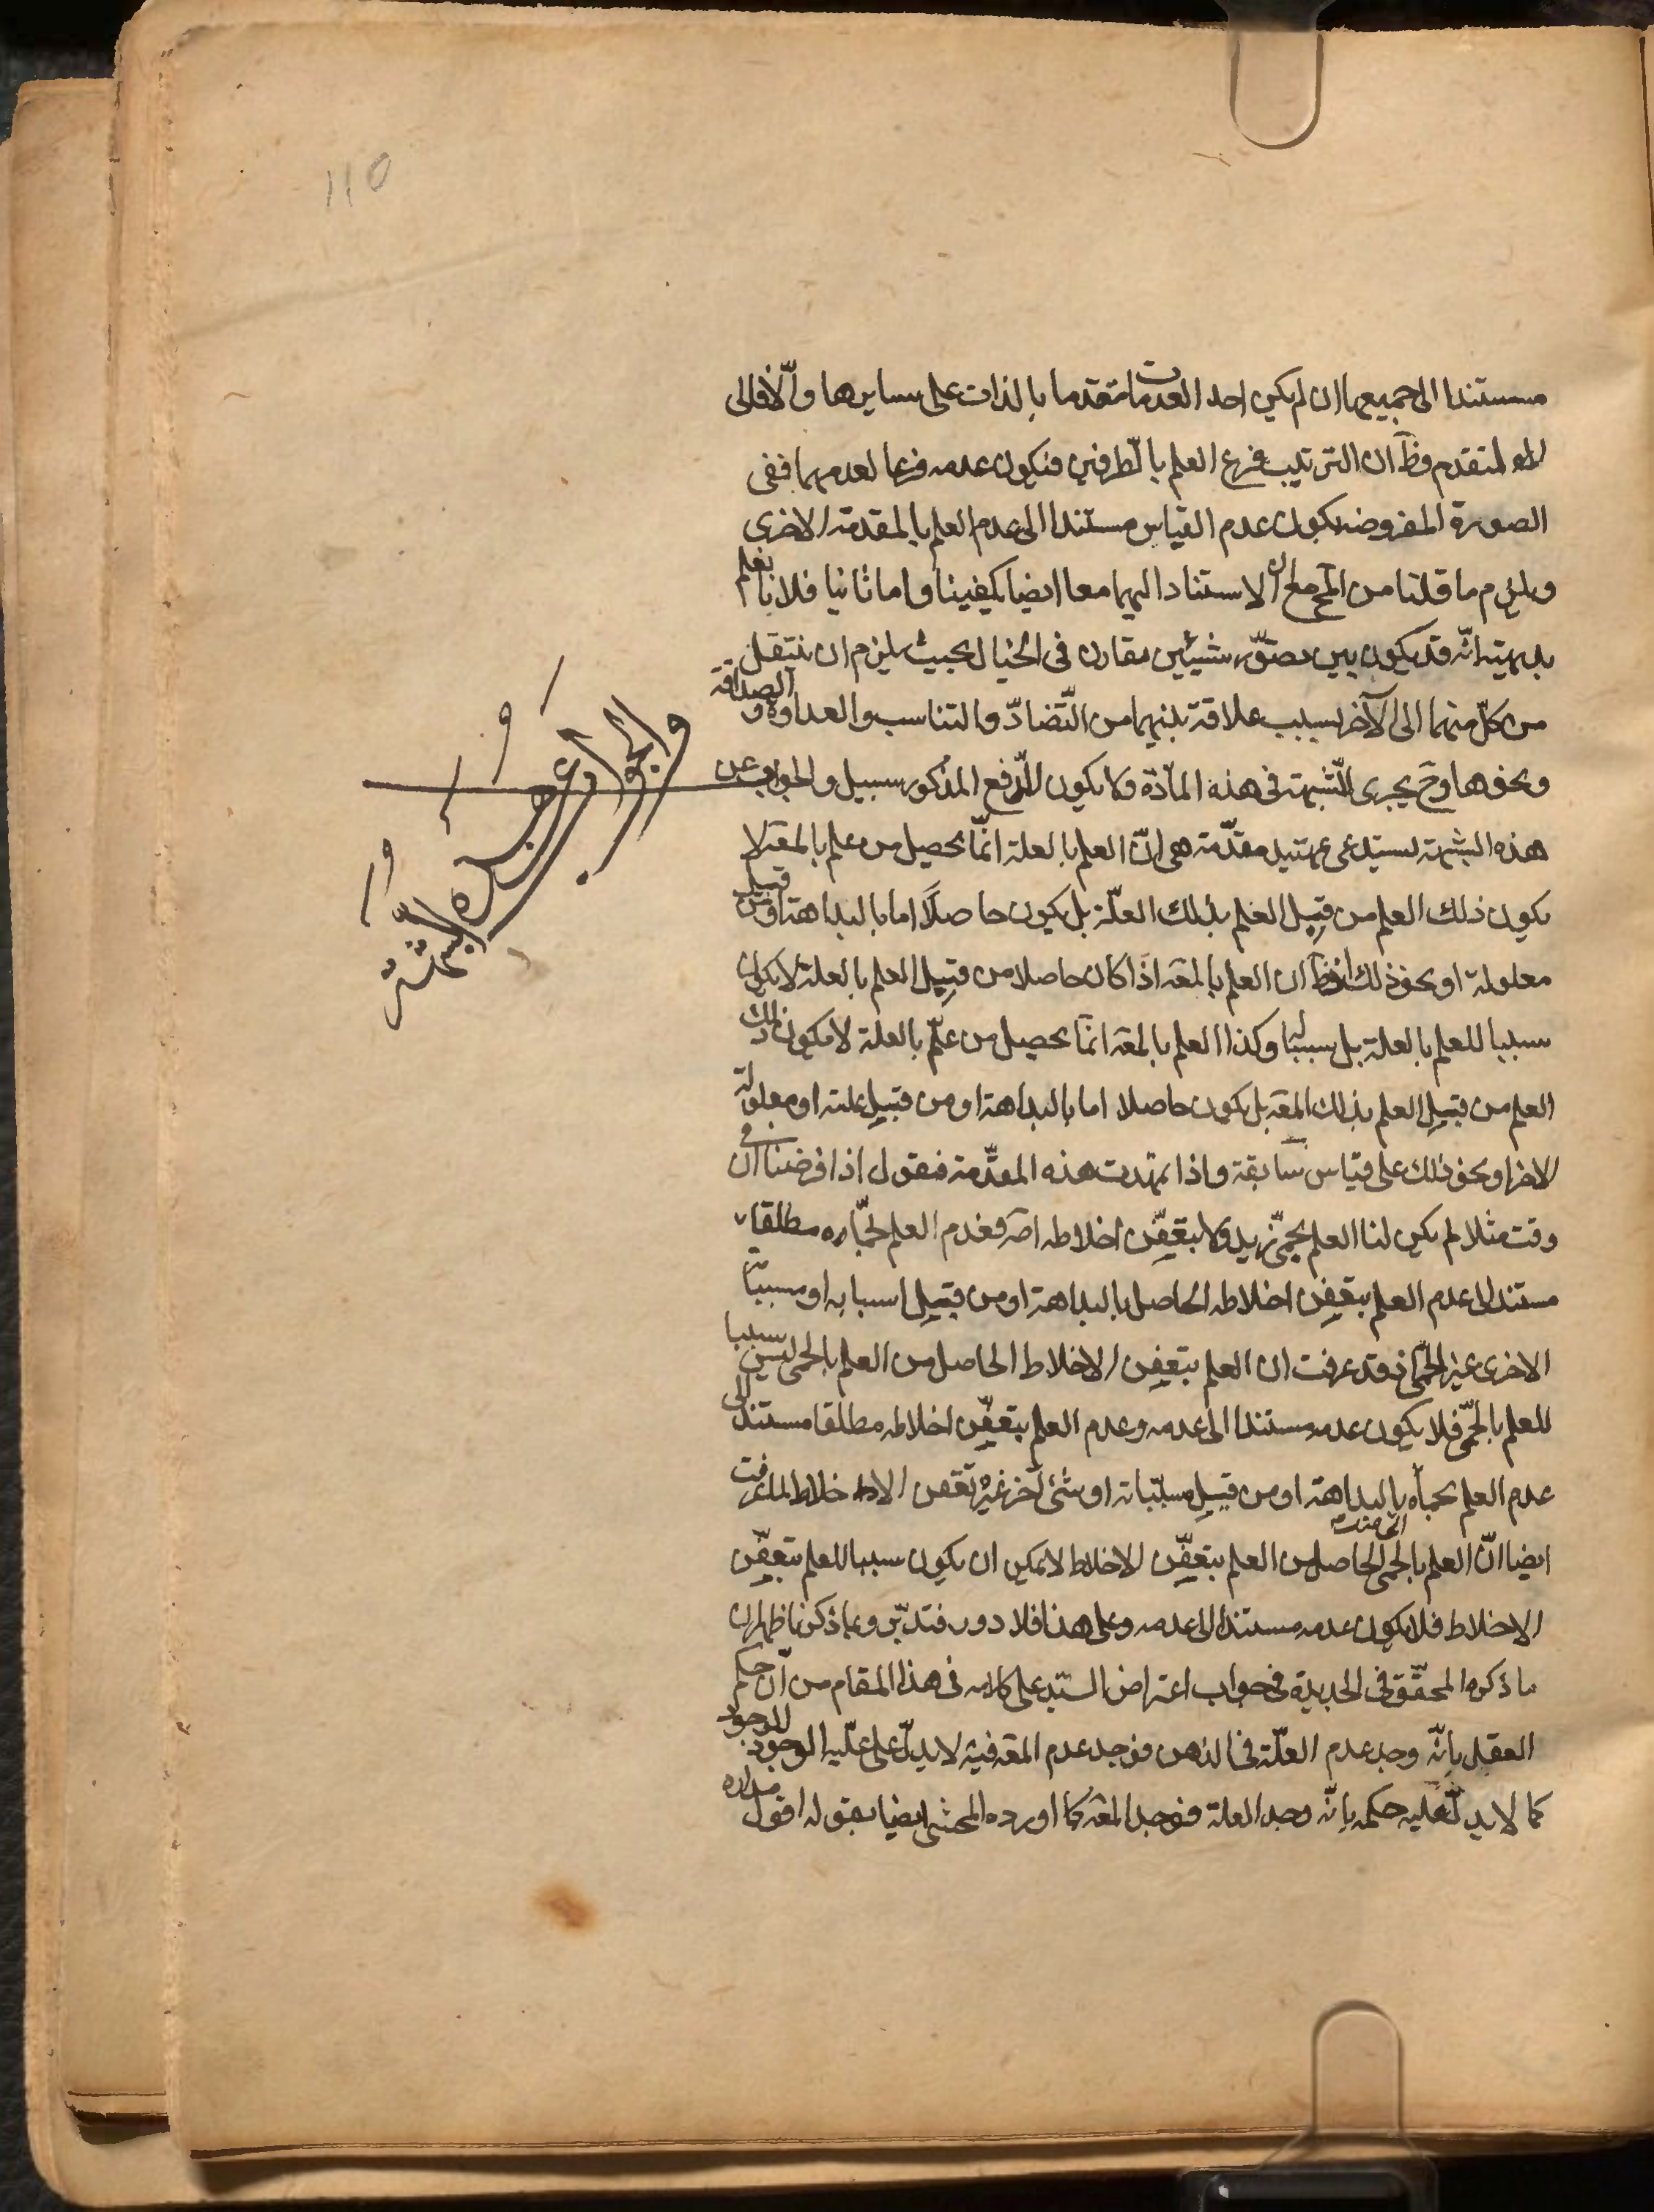 110
مستندا الى جميعها ان لم يكن احد العدمات متقدما بالذات على سايرها والّا فالى
المتقدم وظ ان الترتيب فرع العلم بالطرفين فيكون عدمه فرعا لعدمهما ففى
الصورة المفروضة يكون عدم القياس مستندا الى عدم العلم بالمقدمة الاخرى
ويلزم ما قلنا من الاستناد اليهما معا ايضا يكفينا واما ثانيا فلانا نعلم
بديهة انّه قد يكون بين تصوّر شيئين مقارن فى الخيال بحيث يلزم ان ينتقل
من كلّ منهما الى الآخر بسبب علاقة بينهما من التّضادّ والتناسب والعداوة و الصداقة
ونحوها وح يجرى الشّبهة فى هذه المادّة ولا يكون للدّفع المذكور سبيل والجواب عن
هذه الشبهة يستدعى تمهيد مقدّمة هى انّ العلم بالعلة انّما يحصل من علم بالمعه لا
يكون ذلك العلم من قبل العلم بذلك العلّة بل يكون حاصلًا اما بالبداهة او من قبيل
معلولة او نحو ذلك اذ ظ ان العلم بالمعه اذا كان حاصلا من قبيل العلم بالعلة لا يكون
سببا للعلم بالعلة بل سببا وكذا العلم بالمعه انّما يحصل من علم بالعلة لا يكون ذلك
العلم من قبيل العلم بذلك المعه بل يكون حاصلا اما بالبداهة او من قبيل علته او معلولة
الاخر او نحو ذلك على قياس سابقة واذا تمهدت هذه المقدّمة فنقول اذا فرضنا ان فى
وقت مثلا لم يكن لنا العلم بحمّى زيد ولا بتعفّن اخلاطه اصه فعدم العلم بحمّاه مطلقا
مستند الى عدم العلم بتعفن اخلاطه الحاصل بالبداهة او من قبيل اسبابه او مسبباته
الاخرى غير الحمّى اذ قد عرفت ان العلم بتعفن الاخلاط الحاصل من العلم بالحمى ليس سببا
للعلم بالحمّى فلا يكون عدمه مستندا الى عدمه وعدم العلم بتعفّن اخلاطه مطلقا مستند الى
عدم العلم بحماه بالبداهة او من قبيل مسبّباته او شئ آخر غير تعفن الاخلاط لما عرفت
ايضا انّ العلم بالحمى الحاصل من العلم بتعفّن الاخلاط لا يمكن ان يكون سببا للعلم بتعفّن
الاخلاط فلا يكون عدمه مستندا الى عدمه وعلى هذا فلا دور فتدبّر وبما ذكرنا ظهر ان
ما ذكره المحقّق فى الجديدة فى جواب اعتراض السّيد على كلامه فى هذا المقام من انّ حكم
العقل بانّه وجد عدم العلّة فى الذهن فوجد عدم المعه فيه لا يدلّ على علّية الوجود للوجود
كما لا يدلّ عليه حكمه بانّه وجد العلة فوجد المعه كما اورده المحشى ايضا بقوله اقول
والجواب عن هذه الشبهة